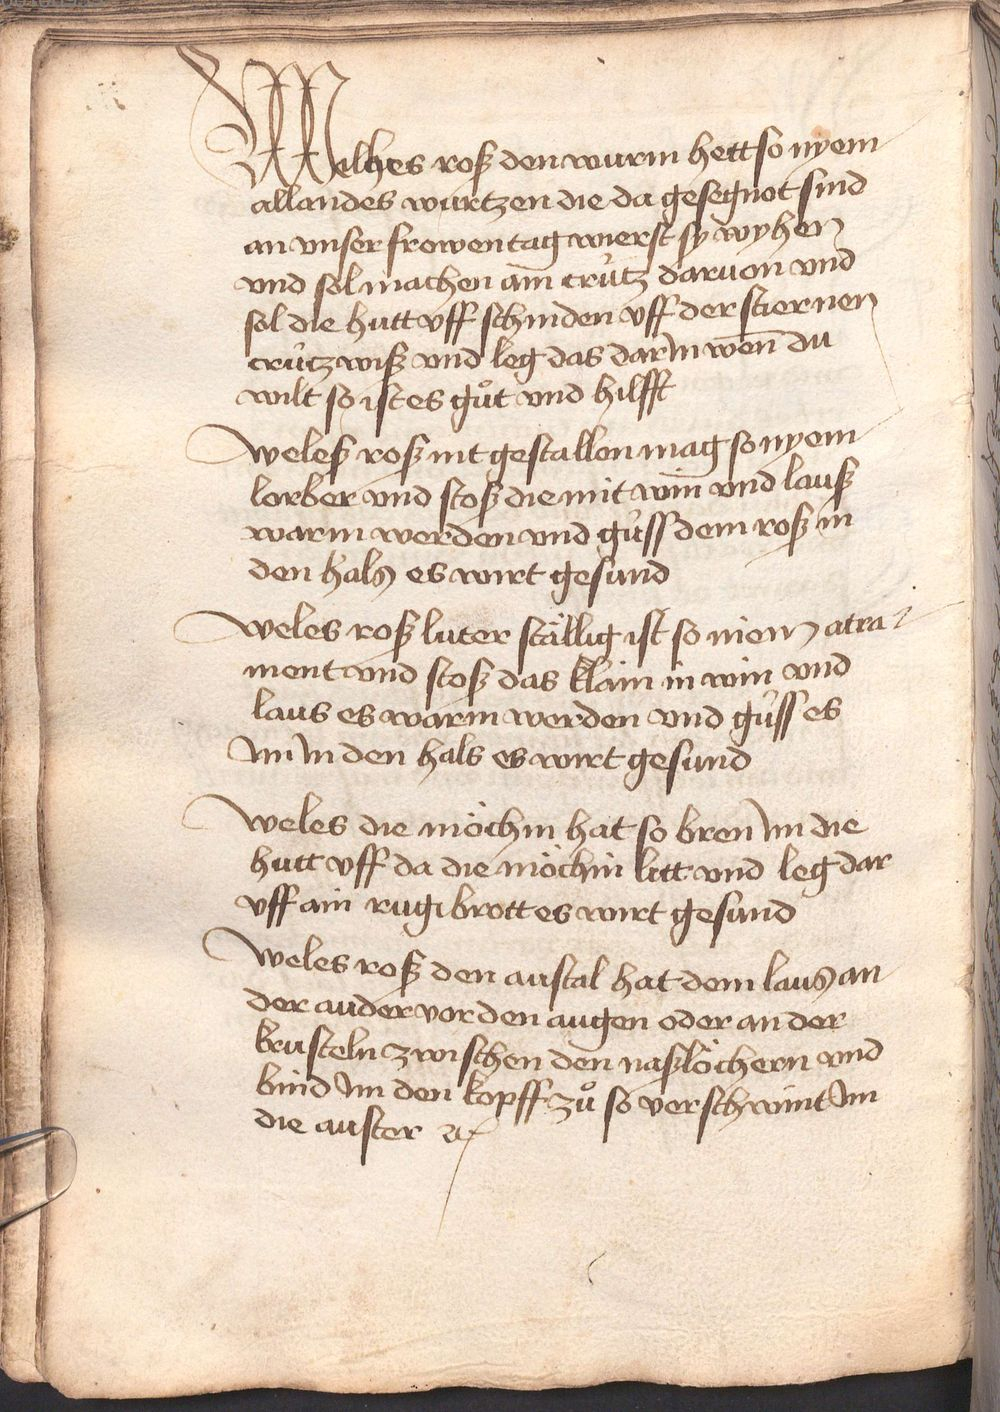 Welhes roß den wurm hett so nyem
allandes wurtzen die da gesegnot sind
an vnser frowen tag wierst sy wyhen
vnd sol machen ain crütz daruon vnd
sol die hutt vff schinden vff der stiernen
crütz wiß vnd leg das darin wen du
wilt so ist es gůt vnd hilfft
weleß roß nit gestallen mag so nyem
lorber vnd stoß die mit win vnd lauß
warm werden vnd güss dem roß in
den hals es wirt gesund
weles roß luter ställig ist so niem atra
ment vnd stoß das klain in win vnd
laus es warm werden vnd güss es
im in den hals es wirt gesund
weles die möchin hat so bren im die
hutt vff da die möchin litt vnd leg dar
vff ain rugi brott es wirt gesund
weles roß den austal hat dem laus an
der auder vor den augen oder an der
krusteln zwischen den naßlöchern vnd
bind im den kopff zů so verschwint im
die auster